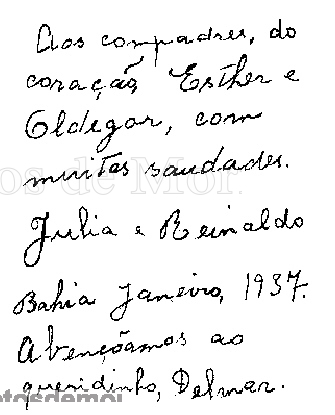 Aos compadres, do
coração, Esther e
Oldegar, com
muitas saudades.
os de Mor
Julia e Reinaldo
Bahia Janeiro, 1937.
Abençôamos ao
queridinho, Delmar.
otosdemoi